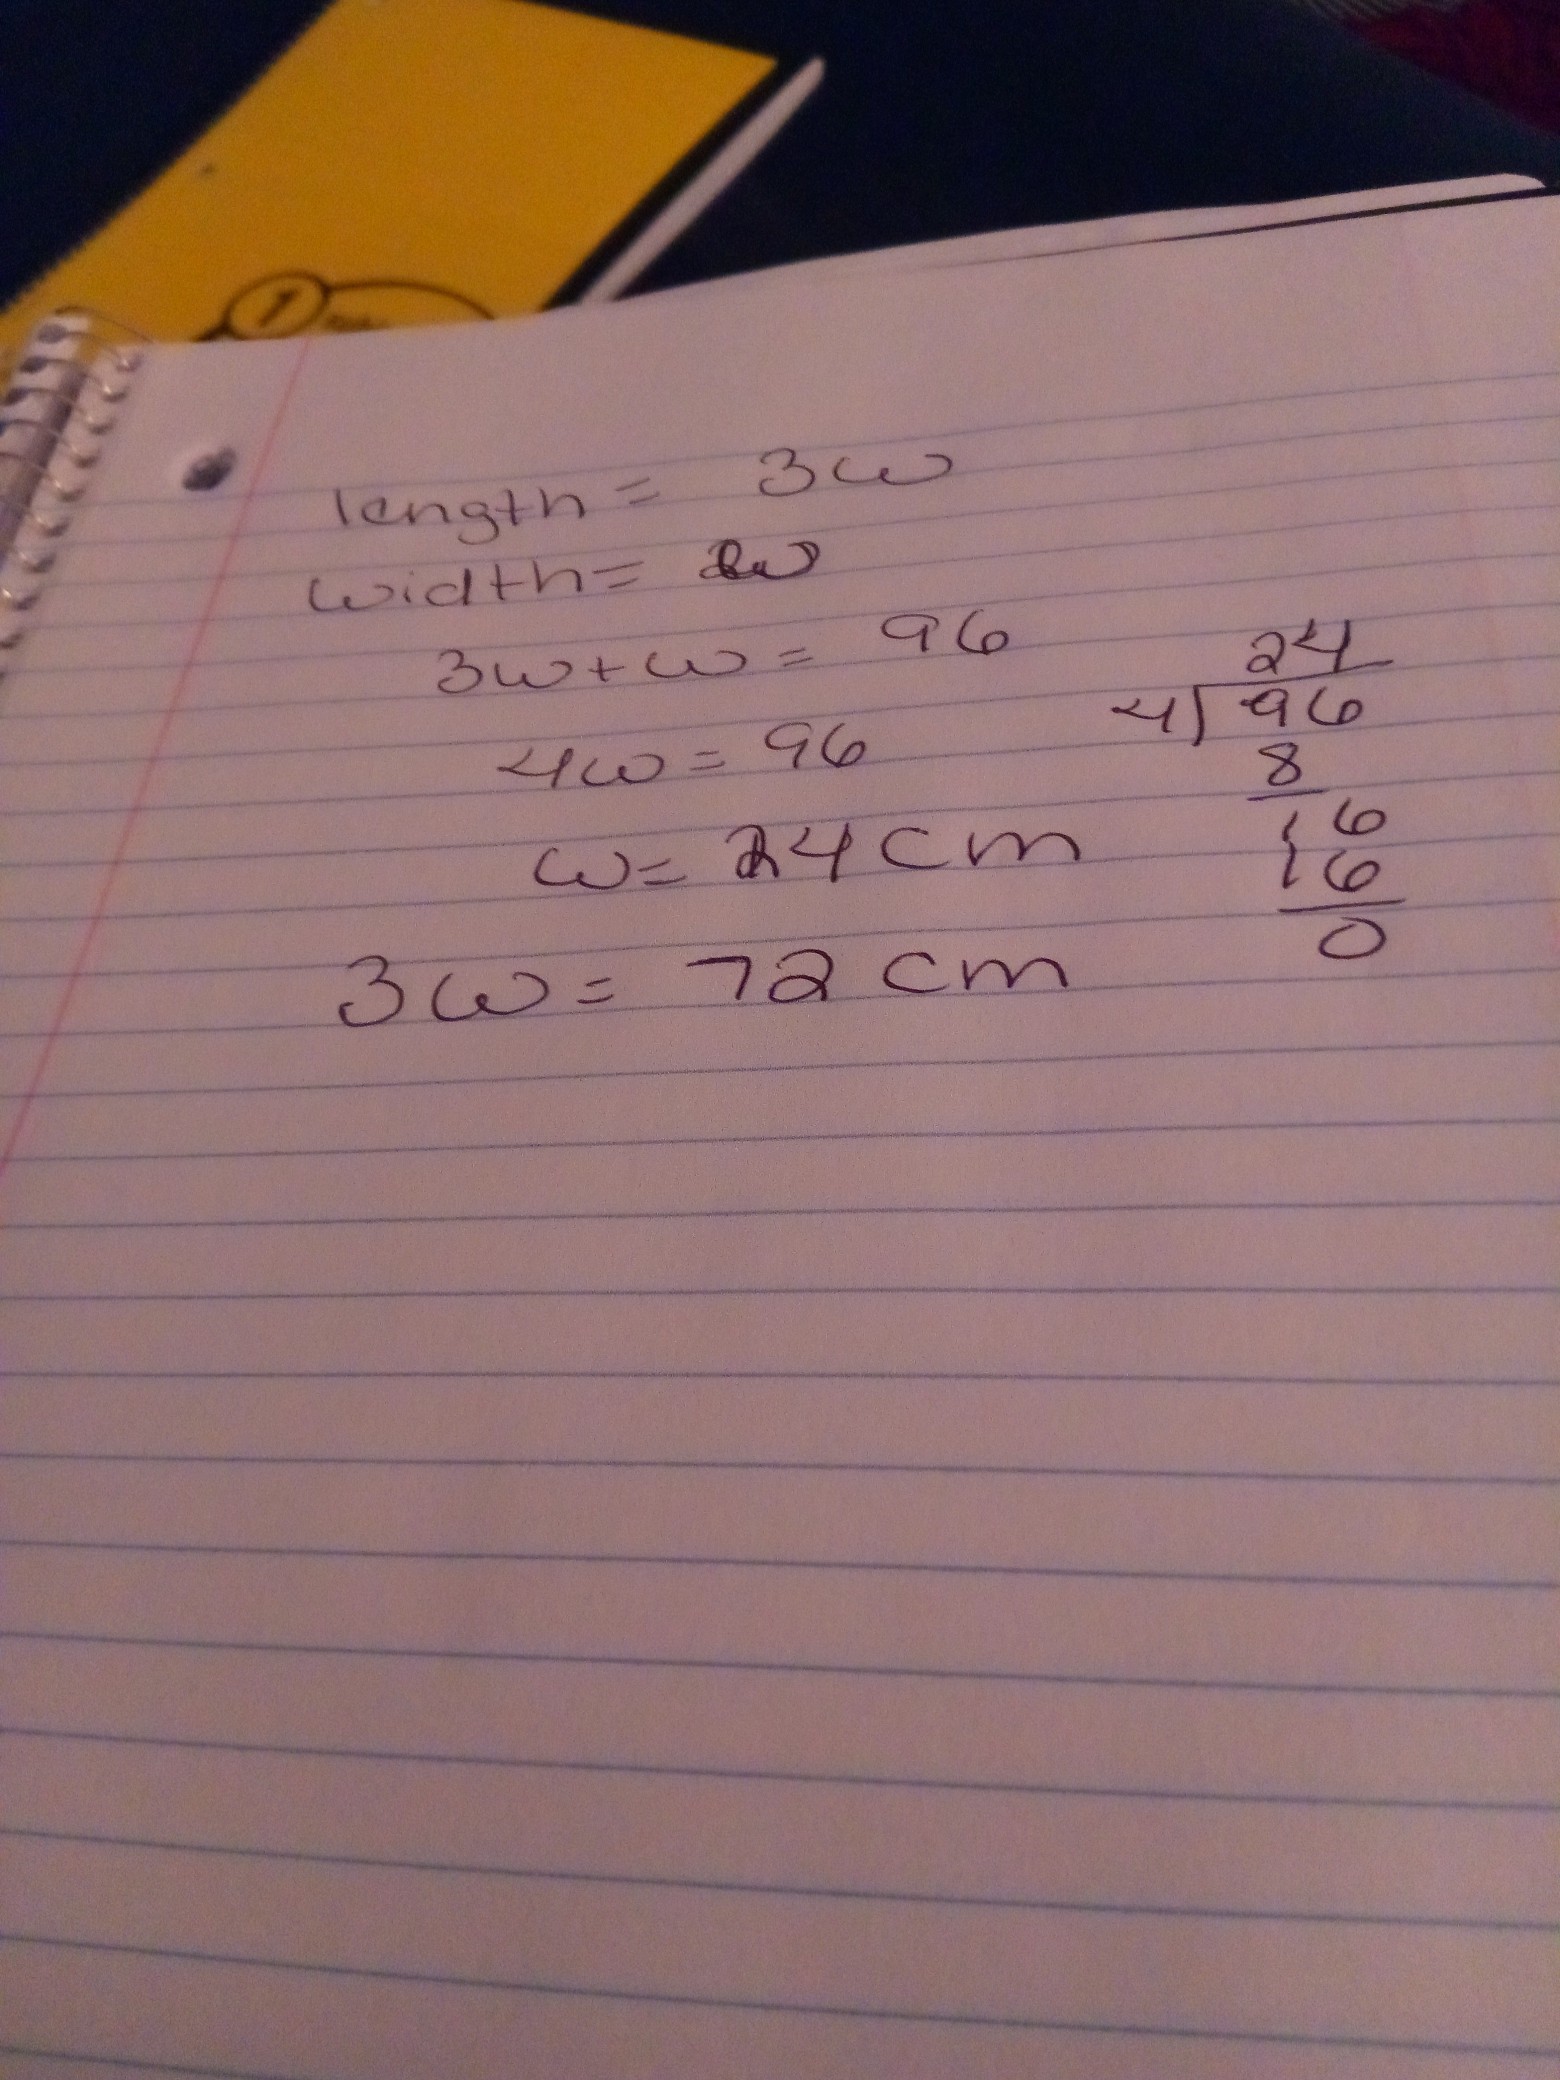 length = 3w
width = w
3w + w = 96
4w = 96
w = 24 cm
3w = 72 cm
24
4)96
8
16
16
0